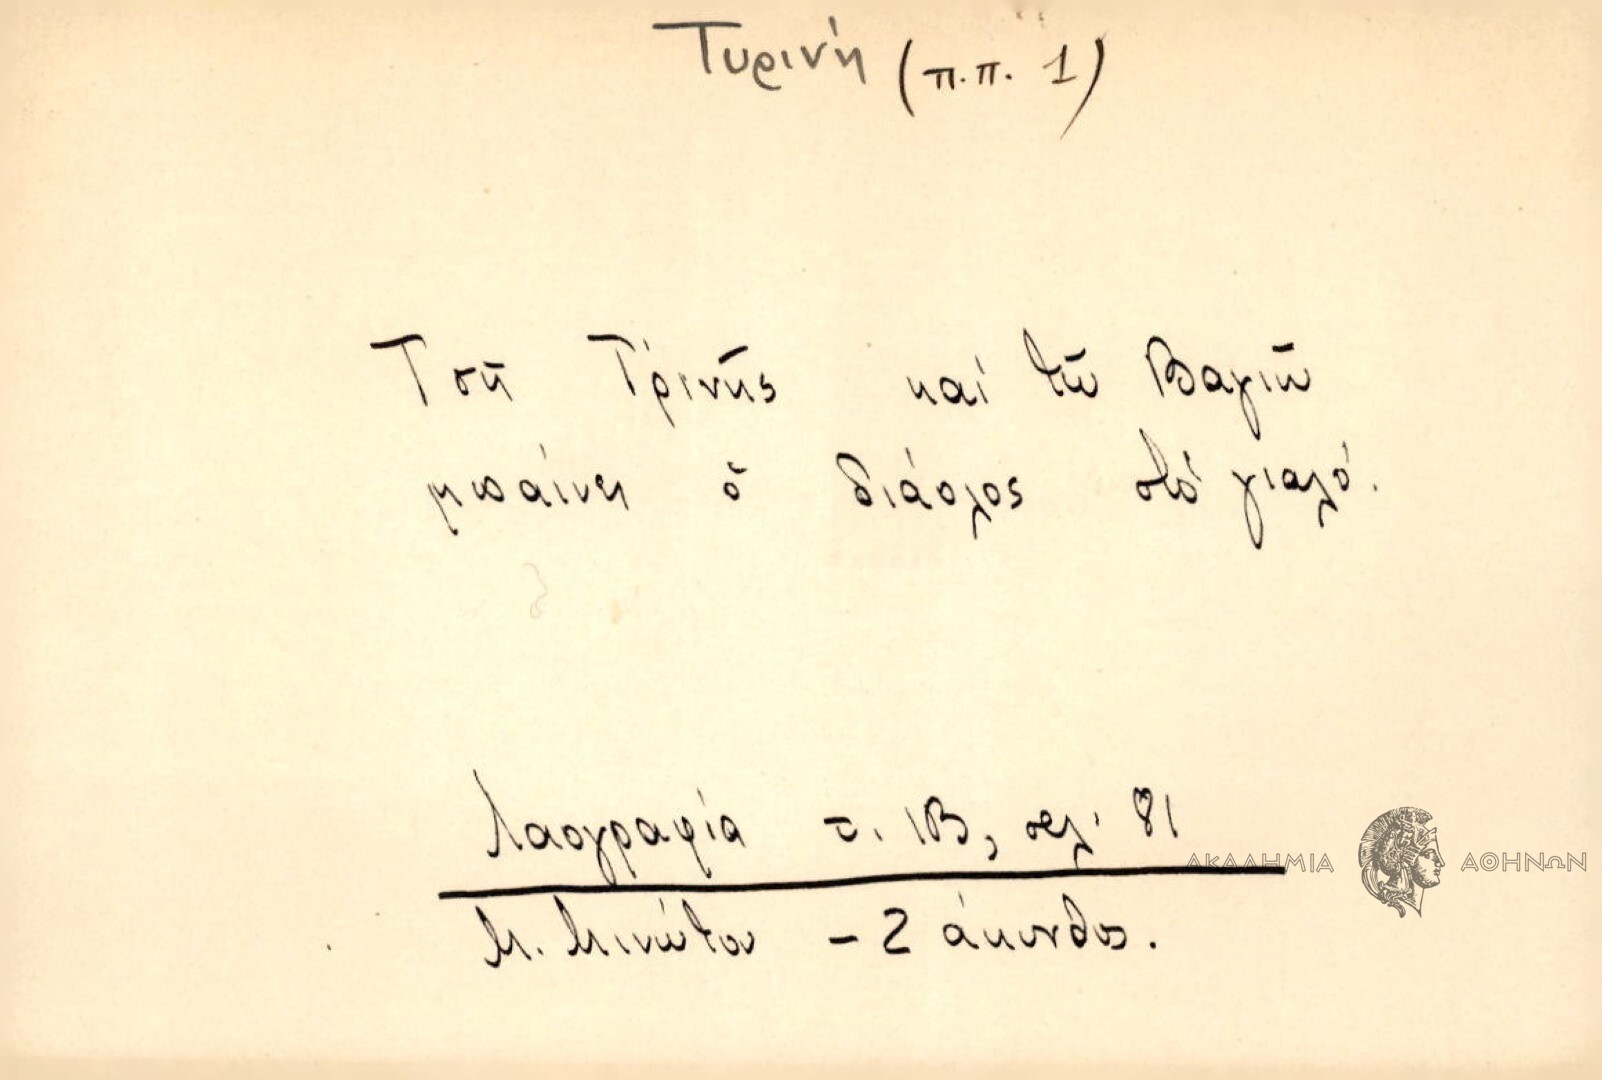 Τυρινή (π.π. 1)
Τσῆ Τρινῆς καί τῶ Βαγιῶ
μπαίνει ὁ διάολος στό γιαλό.
Λαογραφία τ. ΙΒ, σελ. 81
Μ. Μινώτου - Ζάκυνθος.
ΑΚΑΔΗΜΙΑ ΑΘΗΝΩΝ